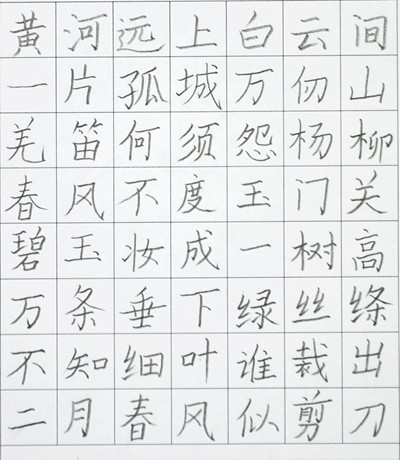 黄河远上白云间
一片孤城万仞山
羌笛何须怨杨柳
春风不度玉门关
碧玉妆成一树高
万条垂下绿丝绦
不知细叶谁裁出
二月春风似剪刀